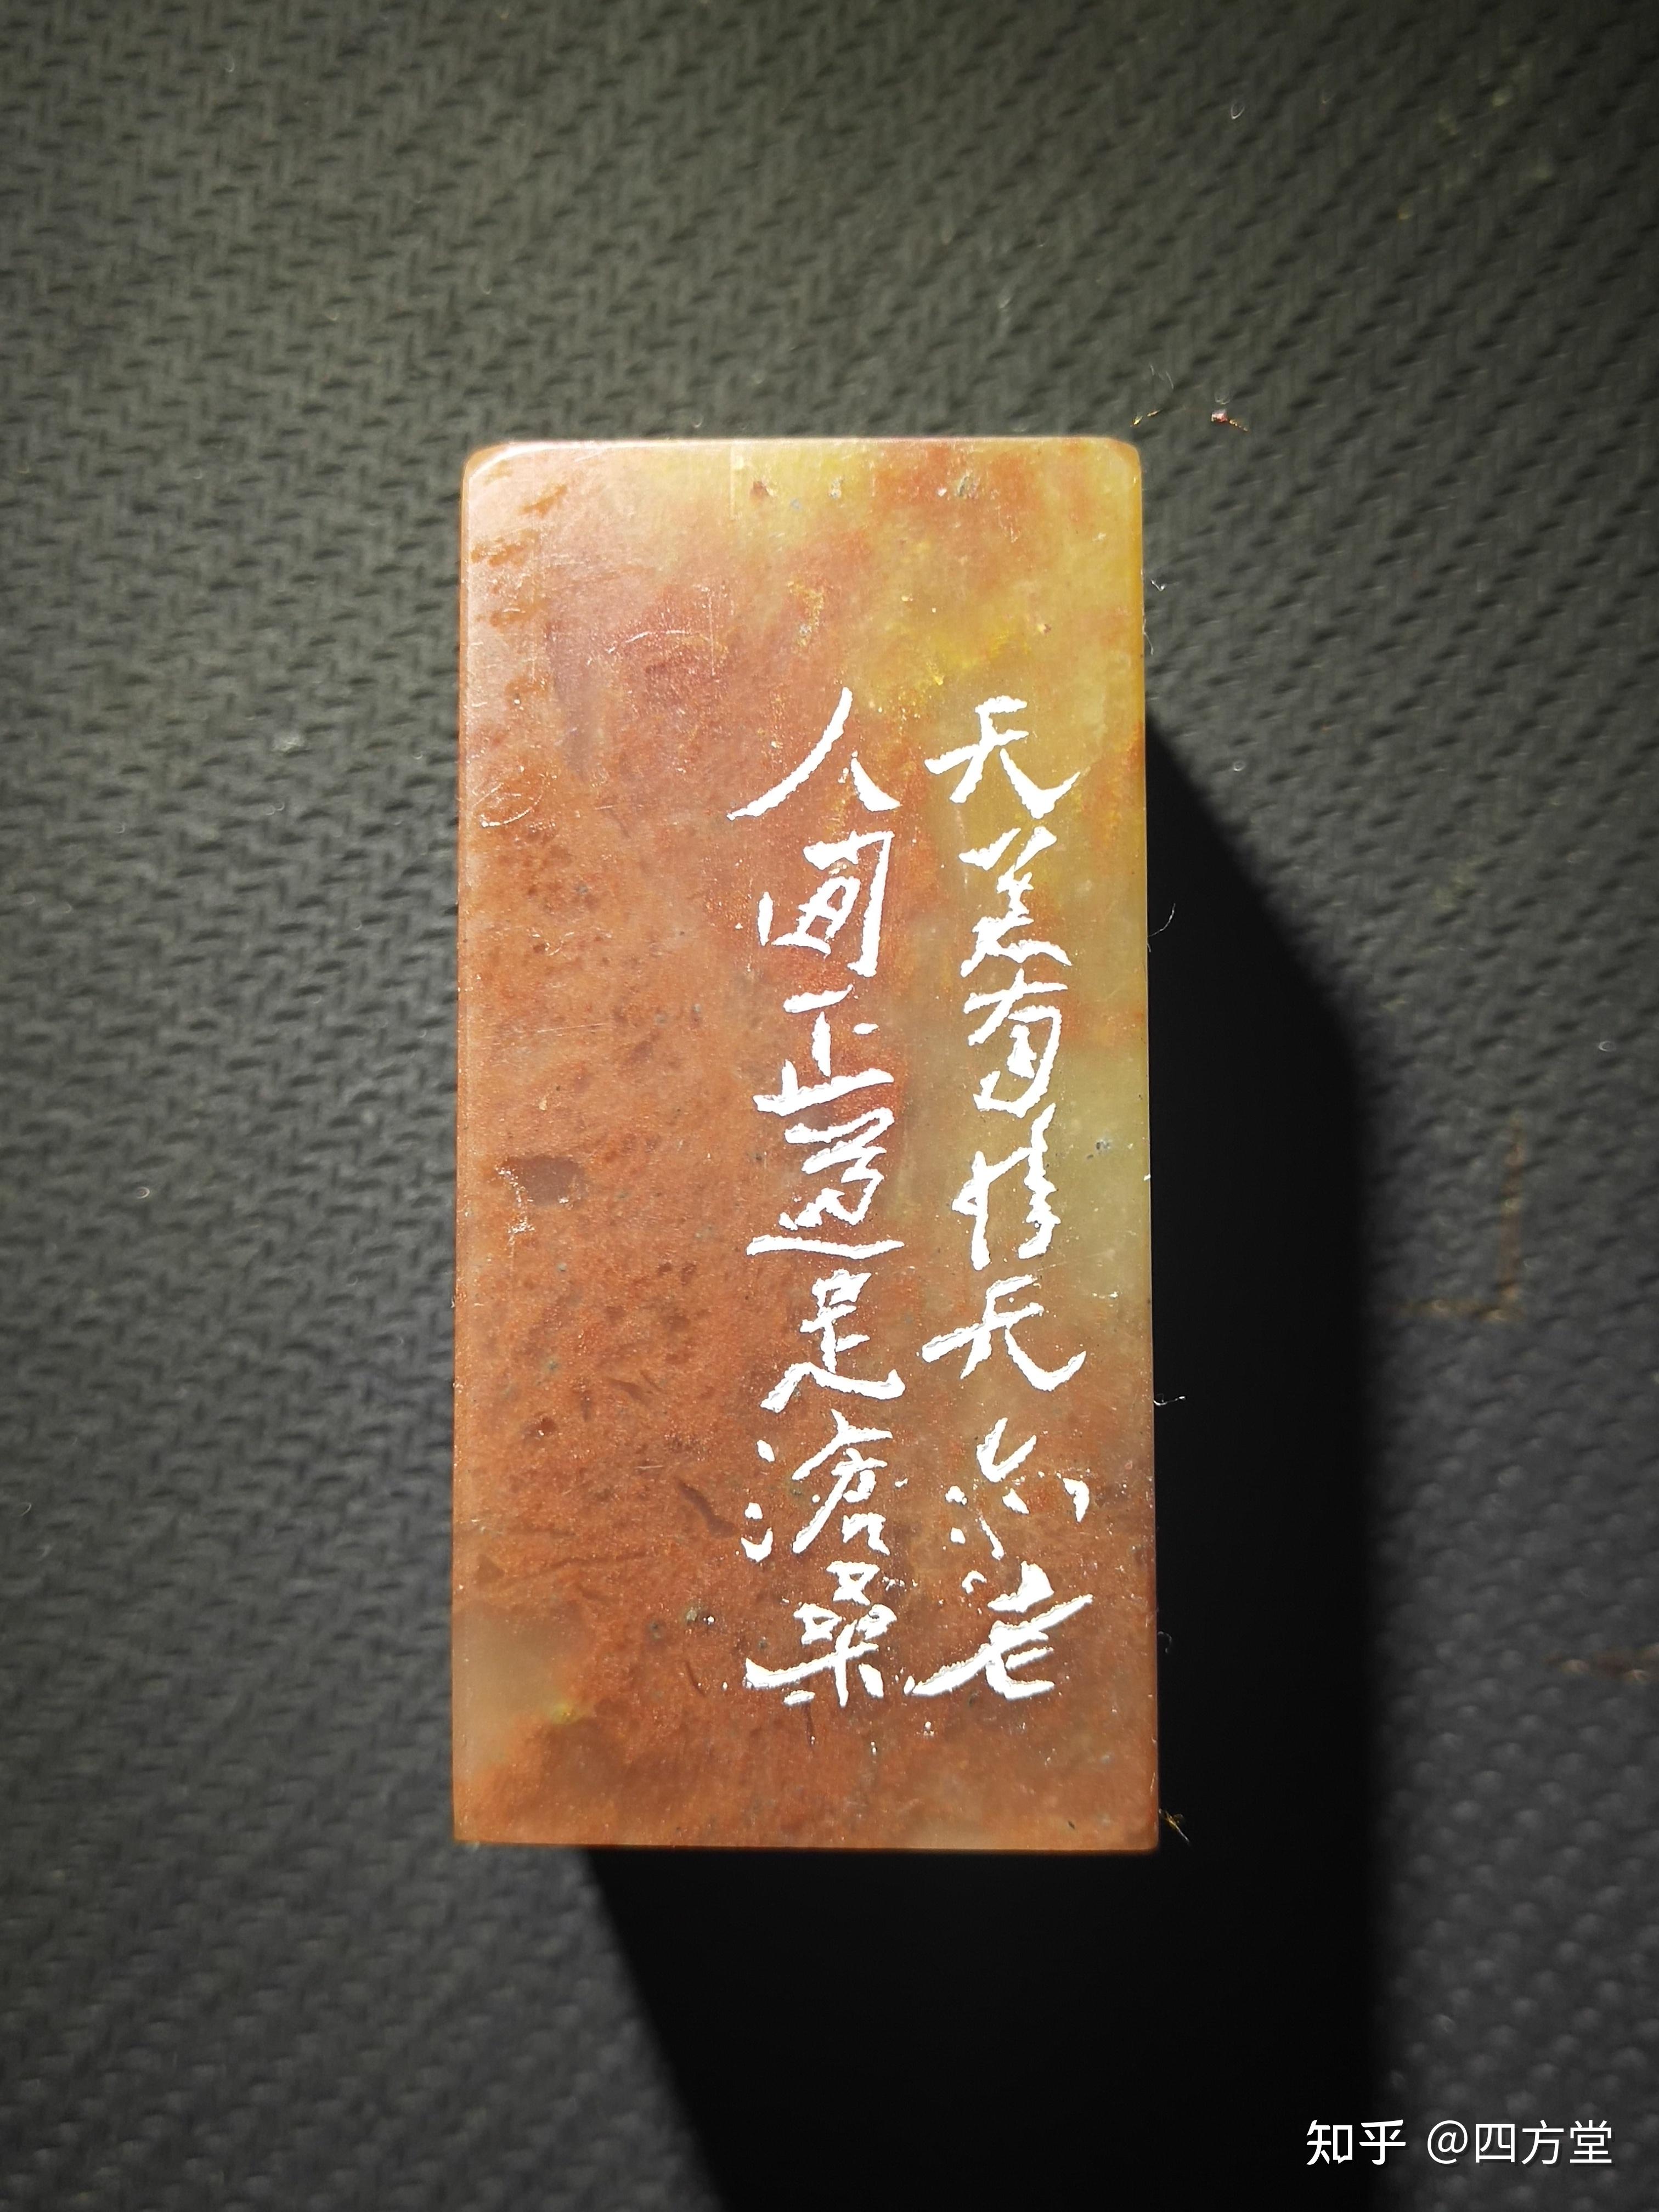 天若有情天亦老
人间正道是滄桑
知乎 @四方堂